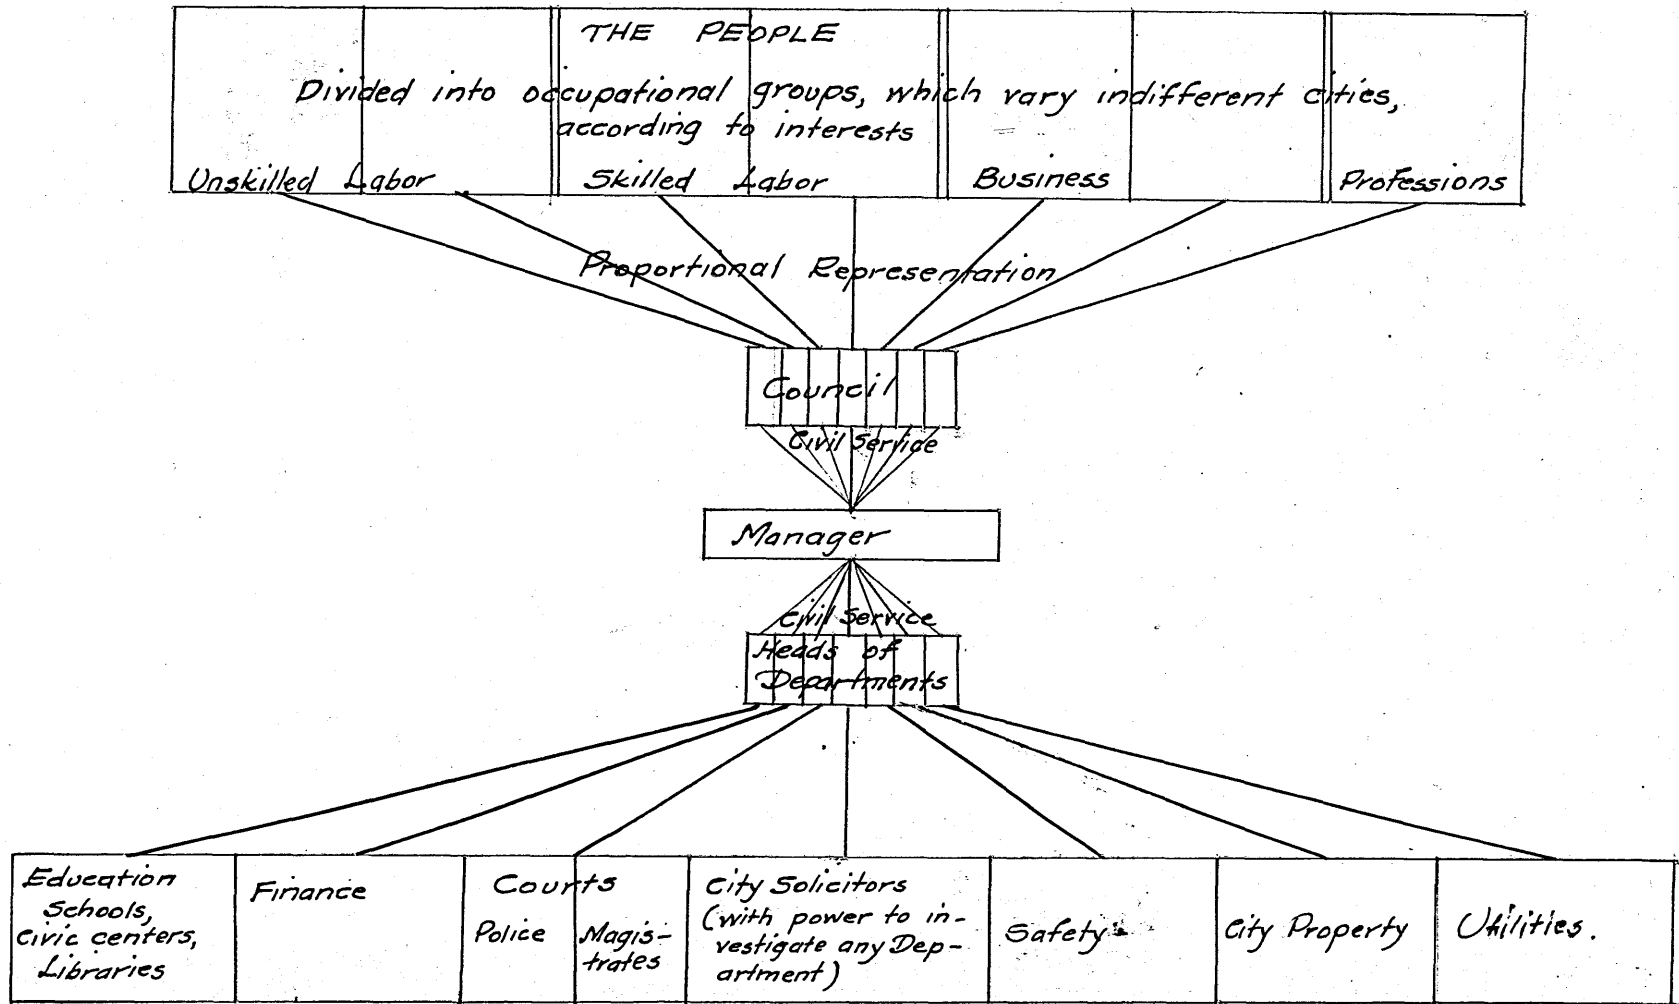 THE PEOPLE
Divided into occupational groups, which vary indifferent cities,
according to interests
Unskilled Labor
Skilled Labor
Business
Professions
Proportional Representation
Council
Civil Service
Manager
Civil Service
Heads of
Departments
Education
Schools,
Civic centers,
Libraries
Finance
Courts
Police
Magis-
trates
City Solicitors
(with power to in-
vestigate any Dep-
artment)
Safety
City Property
Utilities.